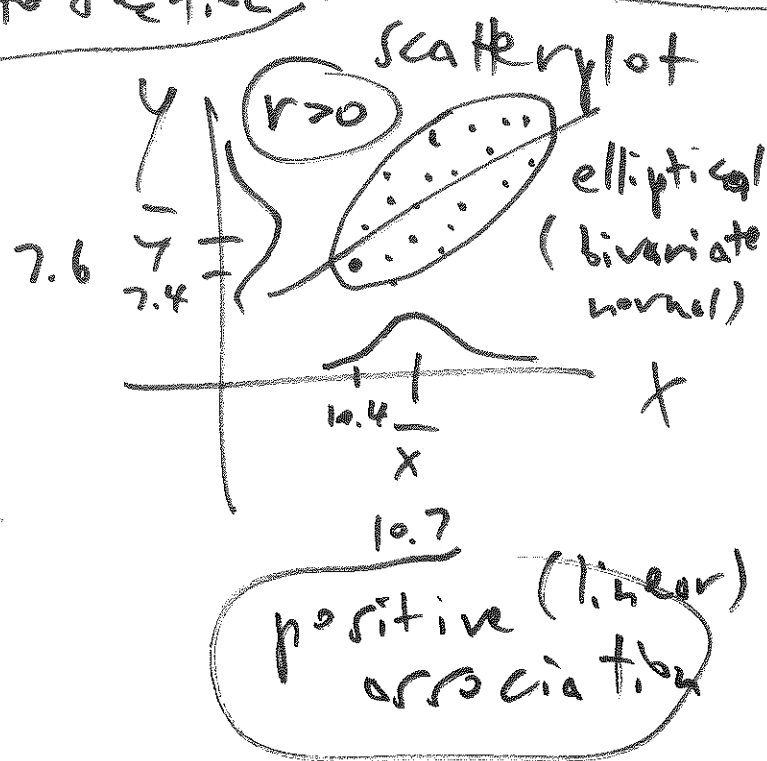 scatterplot
y
r>0
elliptical
(bivariate
normal)
7.6 ȳ
7.4
10.4
x̄
X
10.7
positive (linear)
association